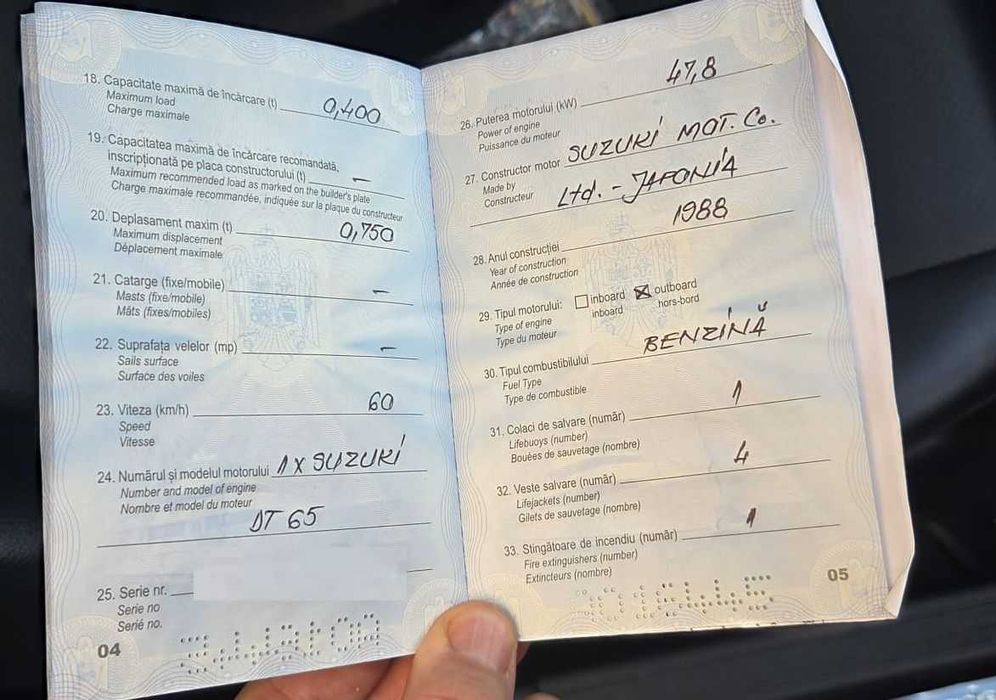 18. Capacitate maximă de încărcare (t) 0,400
Maximum load
Charge maximale
19. Capacitatea maximă de încărcare recomandată,
inscripționată pe placa constructorului (t) –
Maximum recommended load as marked on the builder's plate
Charge maximale recommandée, indiquée sur la plaque du constructeur
20. Deplasament maxim (t) 0,750
Maximum displacement
Déplacement maximale
21. Catarge (fixe/mobile) –
Masts (fixe/mobile)
Mâts (fixes/mobiles)
22. Suprafața velelor (mp) –
Sails surface
Surface des voiles
23. Viteza (km/h) 60
Speed
Vitesse
24. Numărul și modelul motorului 1 X SUZUKI
Number and model of engine
Nombre et model du moteur
DT 65
25. Serie nr.
Serie no
Serié no.
04
26. Puterea motorului (kW) 47,8
Power of engine
Puissance du moteur
27. Constructor motor SUZUKI MOT. Co.
Made by
Constructeur Ltd. - JAPONIA
28. Anul construcției 1988
Year of construction
Année de construction
29. Tipul motorului: inboard outboard
Type of engine inboard hors-bord
Type du moteur
30. Tipul combustibilului BENZINĂ
Fuel Type
Type de combustible
31. Colaci de salvare (număr) 1
Lifebuoys (number)
Bouées de sauvetage (nombre)
32. Veste salvare (număr) 4
Lifejackets (number)
Gilets de sauvetage (nombre)
33. Stingătoare de incendiu (număr) 1
Fire extinguishers (number)
Extincteurs (nombre)
05